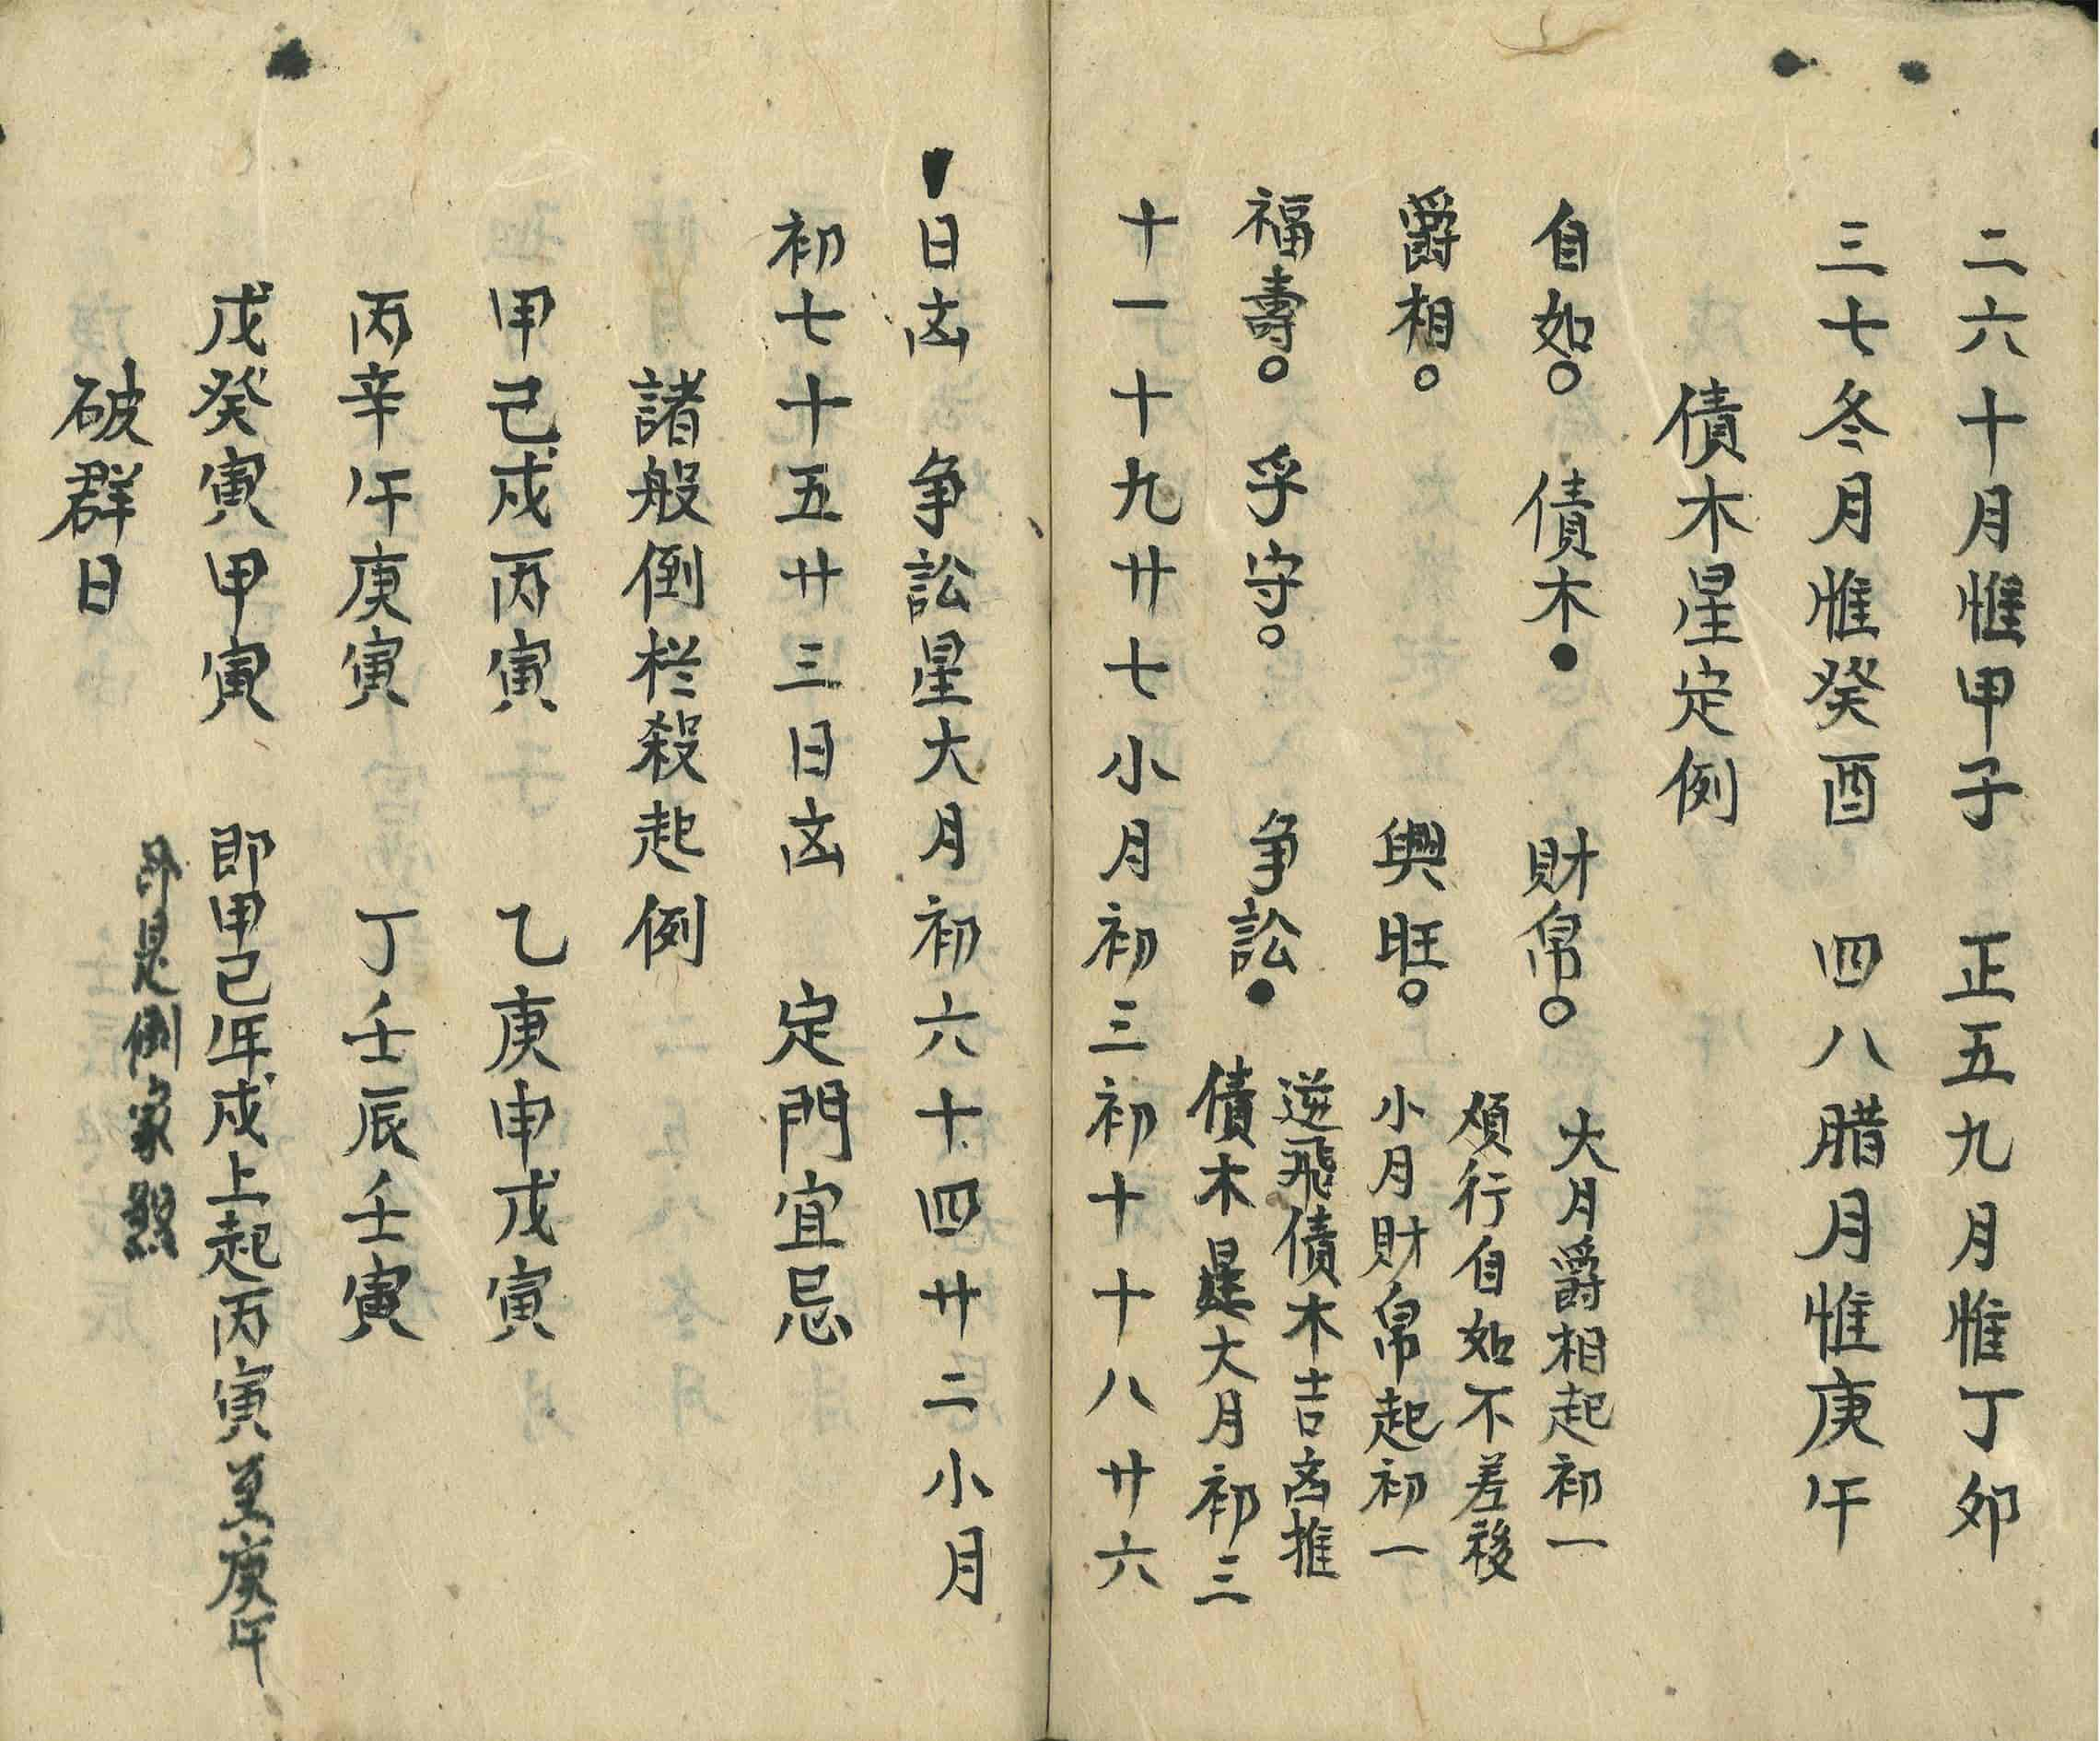 二六十月惟甲子　正五九月惟丁卯
三七冬月惟癸酉　四八腊月惟庚午
債木星定例
自如○　債木●　財帛○　大月爵相起初一
順行自如不差移
爵相○　興旺○　小月財帛起初一
逆飛債木吉凶推
福壽○　孚守○　争訟●　債木星大月初三
十一十九廿七小月初三初十十八廿六
日凶　争訟星大月初六十四廿二小月
初七十五廿三日凶　定門宜忌
諸般倒栏殺起例
甲己戍丙寅　乙庚申戊寅
丙辛午庚寅　丁壬辰壬寅
戊癸寅甲寅　即甲己年戍上起丙寅至庚午
即是倒家煞
破群日